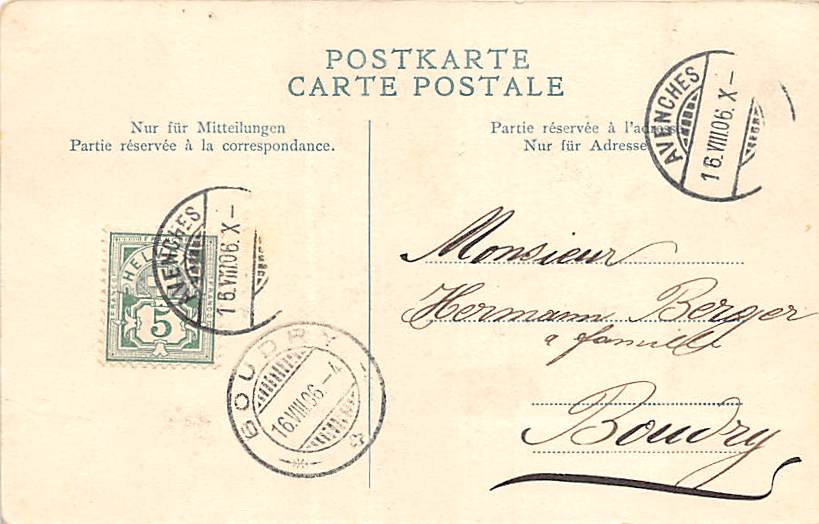 POSTKARTE
CARTE POSTALE
Nur für Mitteilungen
Partie réservée à la correspondance.
Partie réservée à l'adresse
Nur für Adresse
AVENCHES
16.VIII.06.X–
AVENCHES
16.VIII.06.X–
HEL
5
BOUDRY
16.VIII.06–4
Monsieur
Hermann Berger
& famille
Boudry